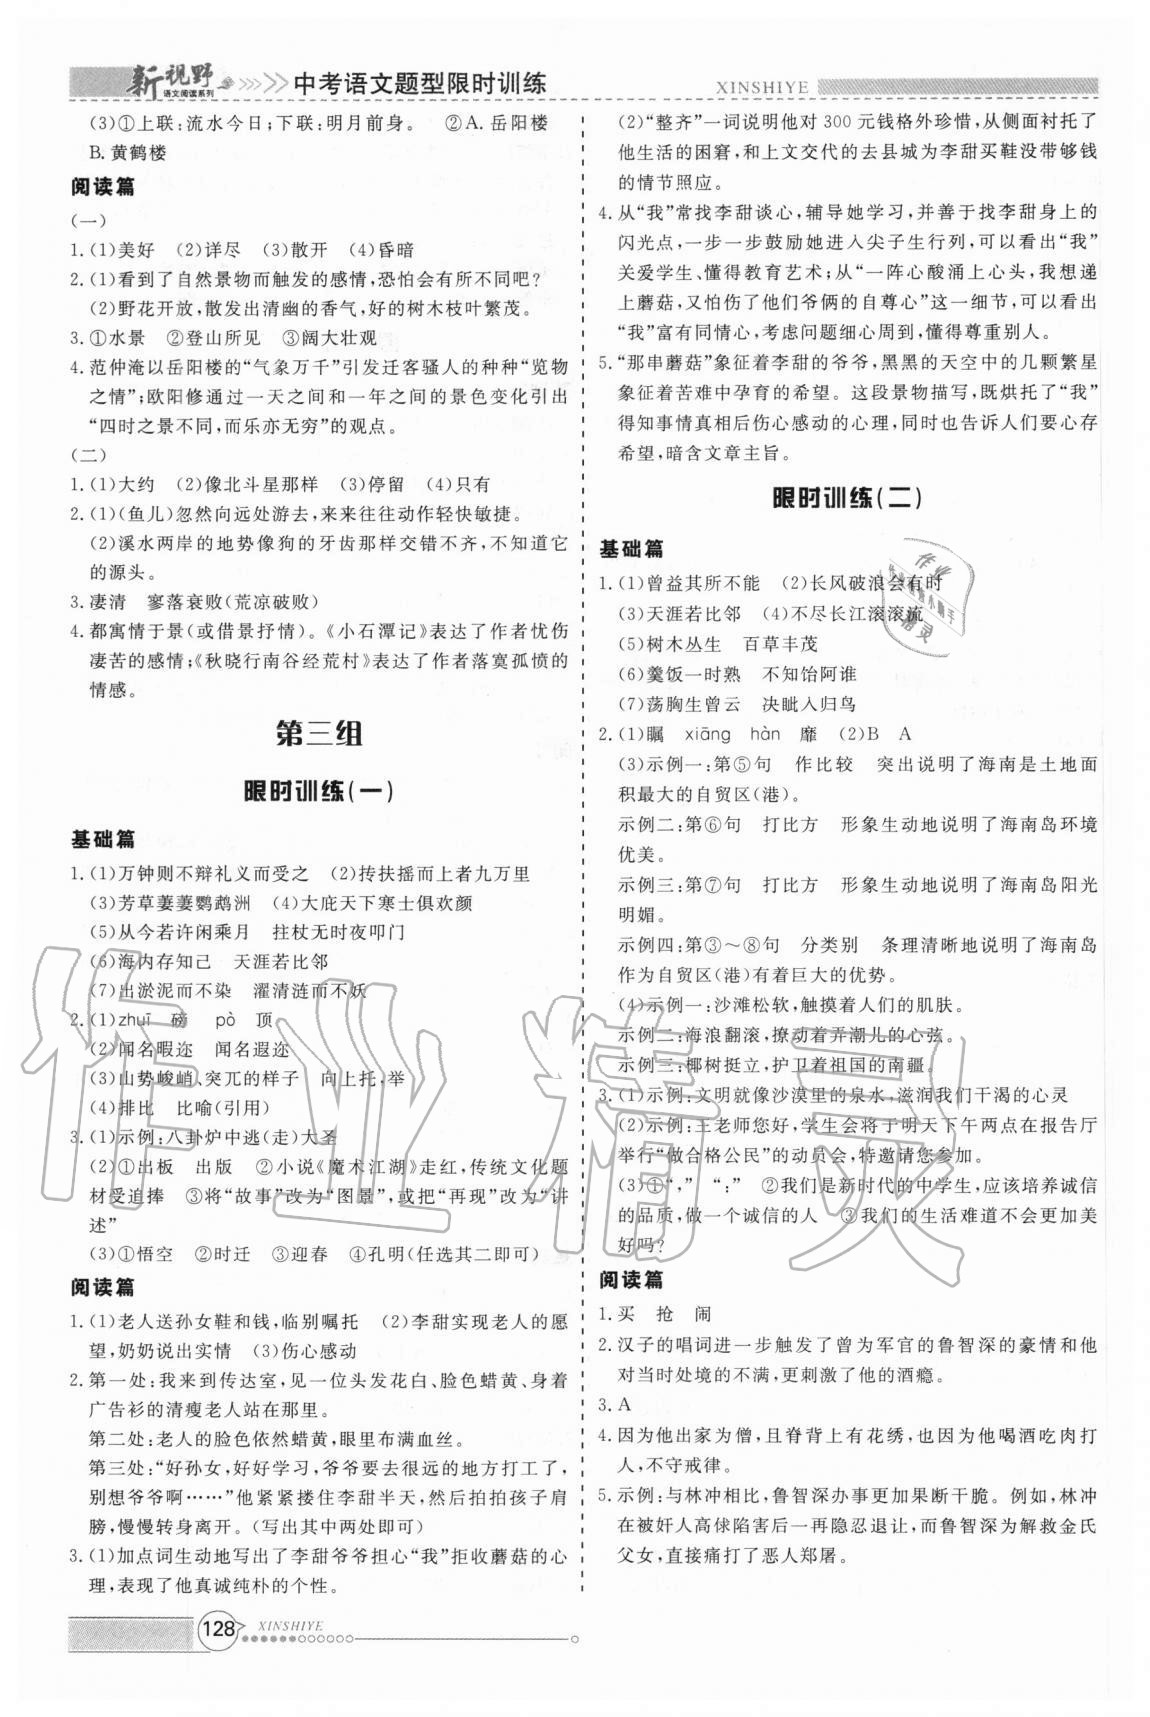 新视野
语文阅读系列
中考语文题型限时训练
XINSHIYE
(3)①上联:流水今日;下联:明月前身。 ②A.岳阳楼
B.黄鹤楼
阅读篇
(一)
1.(1)美好 (2)详尽 (3)散开 (4)昏暗
2.(1)看到了自然景物而触发的感情,恐怕会有所不同吧?
(2)野花开放,散发出清幽的香气,好的树木枝叶繁茂。
3.①水景 ②登山所见 ③阔大壮观
4.范仲淹以岳阳楼的“气象万千”引发迁客骚人的种种“览物
之情”;欧阳修通过一天之间和一年之间的景色变化引出
“四时之景不同,而乐亦无穷”的观点。
(二)
1.(1)大约 (2)像北斗星那样 (3)停留 (4)只有
2.(1)(鱼儿)忽然向远处游去,来来往往动作轻快敏捷。
(2)溪水两岸的地势像狗的牙齿那样交错不齐,不知道它
的源头。
3.凄清 寥落衰败(荒凉破败)
4.都寓情于景(或借景抒情)。《小石潭记》表达了作者忧伤
凄苦的感情;《秋晓行南谷经荒村》表达了作者落寞孤愤的
情感。
第三组
限时训练(一)
基础篇
1.(1)万钟则不辩礼义而受之 (2)抟扶摇而上者九万里
(3)芳草萋萋鹦鹉洲 (4)大庇天下寒士俱欢颜
(5)从今若许闲乘月 拄杖无时夜叩门
(6)海内存知己 天涯若比邻
(7)出淤泥而不染 濯清涟而不妖
2.(1)zhuī 磅 pò 顶
(2)闻名暇迩 闻名遐迩
(3)山势峻峭、突兀的样子 向上托,举
(4)排比 比喻(引用)
3.(1)示例:八卦炉中逃(走)大圣
(2)①出板 出版 ②小说《魔术江湖》走红,传统文化题
材受追捧 ③将“故事”改为“图景”,或把“再现”改为“讲
述”
(3)①悟空 ②时迁 ③迎春 ④孔明(任选其二即可)
阅读篇
1.(1)老人送孙女鞋和钱,临别嘱托 (2)李甜实现老人的愿
望,奶奶说出实情 (3)伤心感动
2.第一处:我来到传达室,见一位头发花白、脸色蜡黄、身着
广告衫的清瘦老人站在那里。
第二处:老人的脸色依然蜡黄,眼里布满血丝。
第三处:“好孙女,好好学习,爷爷要去很远的地方打工了,
别想爷爷啊……”他紧紧搂住李甜半天,然后拍拍孩子肩
膀,慢慢转身离开。(写出其中两处即可)
3.(1)加点词生动地写出了李甜爷爷担心“我”拒收蘑菇的心
理,表现了他真诚纯朴的个性。
(2)“整齐”一词说明他对300元钱格外珍惜,从侧面衬托了
他生活的困窘,和上文交代的去县城为李甜买鞋没带够钱
的情节照应。
4.从“我”常找李甜谈心,辅导她学习,并善于找李甜身上的
闪光点,一步一步鼓励她进入尖子生行列,可以看出“我”
关爱学生、懂得教育艺术;从“一阵心酸涌上心头,我想递
上蘑菇,又怕伤了他们爷俩的自尊心”这一细节,可以看出
“我”富有同情心,考虑问题细心周到,懂得尊重别人。
5.“那串蘑菇”象征着李甜的爷爷,黑黑的天空中的几颗繁星
象征着苦难中孕育的希望。这段景物描写,既烘托了“我”
得知事情真相后伤心感动的心理,同时也告诉人们要心存
希望,暗含文章主旨。
限时训练(二)
基础篇
1.(1)曾益其所不能 (2)长风破浪会有时
(3)天涯若比邻 (4)不尽长江滚滚流
(5)树木丛生 百草丰茂
(6)羹饭一时熟 不知饴阿谁
(7)荡胸生曾云 决眦入归鸟
2.(1)瞩 xiāng hàn 靡 (2)B A
(3)示例一:第⑤句 作比较 突出说明了海南是土地面
积最大的自贸区(港)。
示例二:第⑥句 打比方 形象生动地说明了海南岛环境
优美。
示例三:第⑦句 打比方 形象生动地说明了海南岛阳光
明媚。
示例四:第③～⑧句 分类别 条理清晰地说明了海南岛
作为自贸区(港)有着巨大的优势。
(4)示例一:沙滩松软,触摸着人们的肌肤。
示例二:海浪翻滚,撩动着弄潮儿的心弦。
示例三:椰树挺立,护卫着祖国的南疆。
3.(1)示例:文明就像沙漠里的泉水,滋润我们干渴的心灵
(2)示例:王老师您好,学生会将于明天下午两点在报告厅
举行“做合格公民”的动员会,特邀请您参加。
(3)①“,” “:” ②我们是新时代的中学生,应该培养诚信
的品质,做一个诚信的人 ③我们的生活难道不会更加美
好吗?
阅读篇
1.买 抢 闹
2.汉子的唱词进一步触发了曾为军官的鲁智深的豪情和他
对当时处境的不满,更刺激了他的酒瘾。
3.A
4.因为他出家为僧,且脊背上有花绣,也因为他喝酒吃肉打
人,不守戒律。
5.示例:与林冲相比,鲁智深办事更加果断干脆。例如,林冲
在被奸人高俅陷害后一再隐忍退让,而鲁智深为解救金氏
父女,直接痛打了恶人郑屠。
128
XINSHIYE
作业精灵